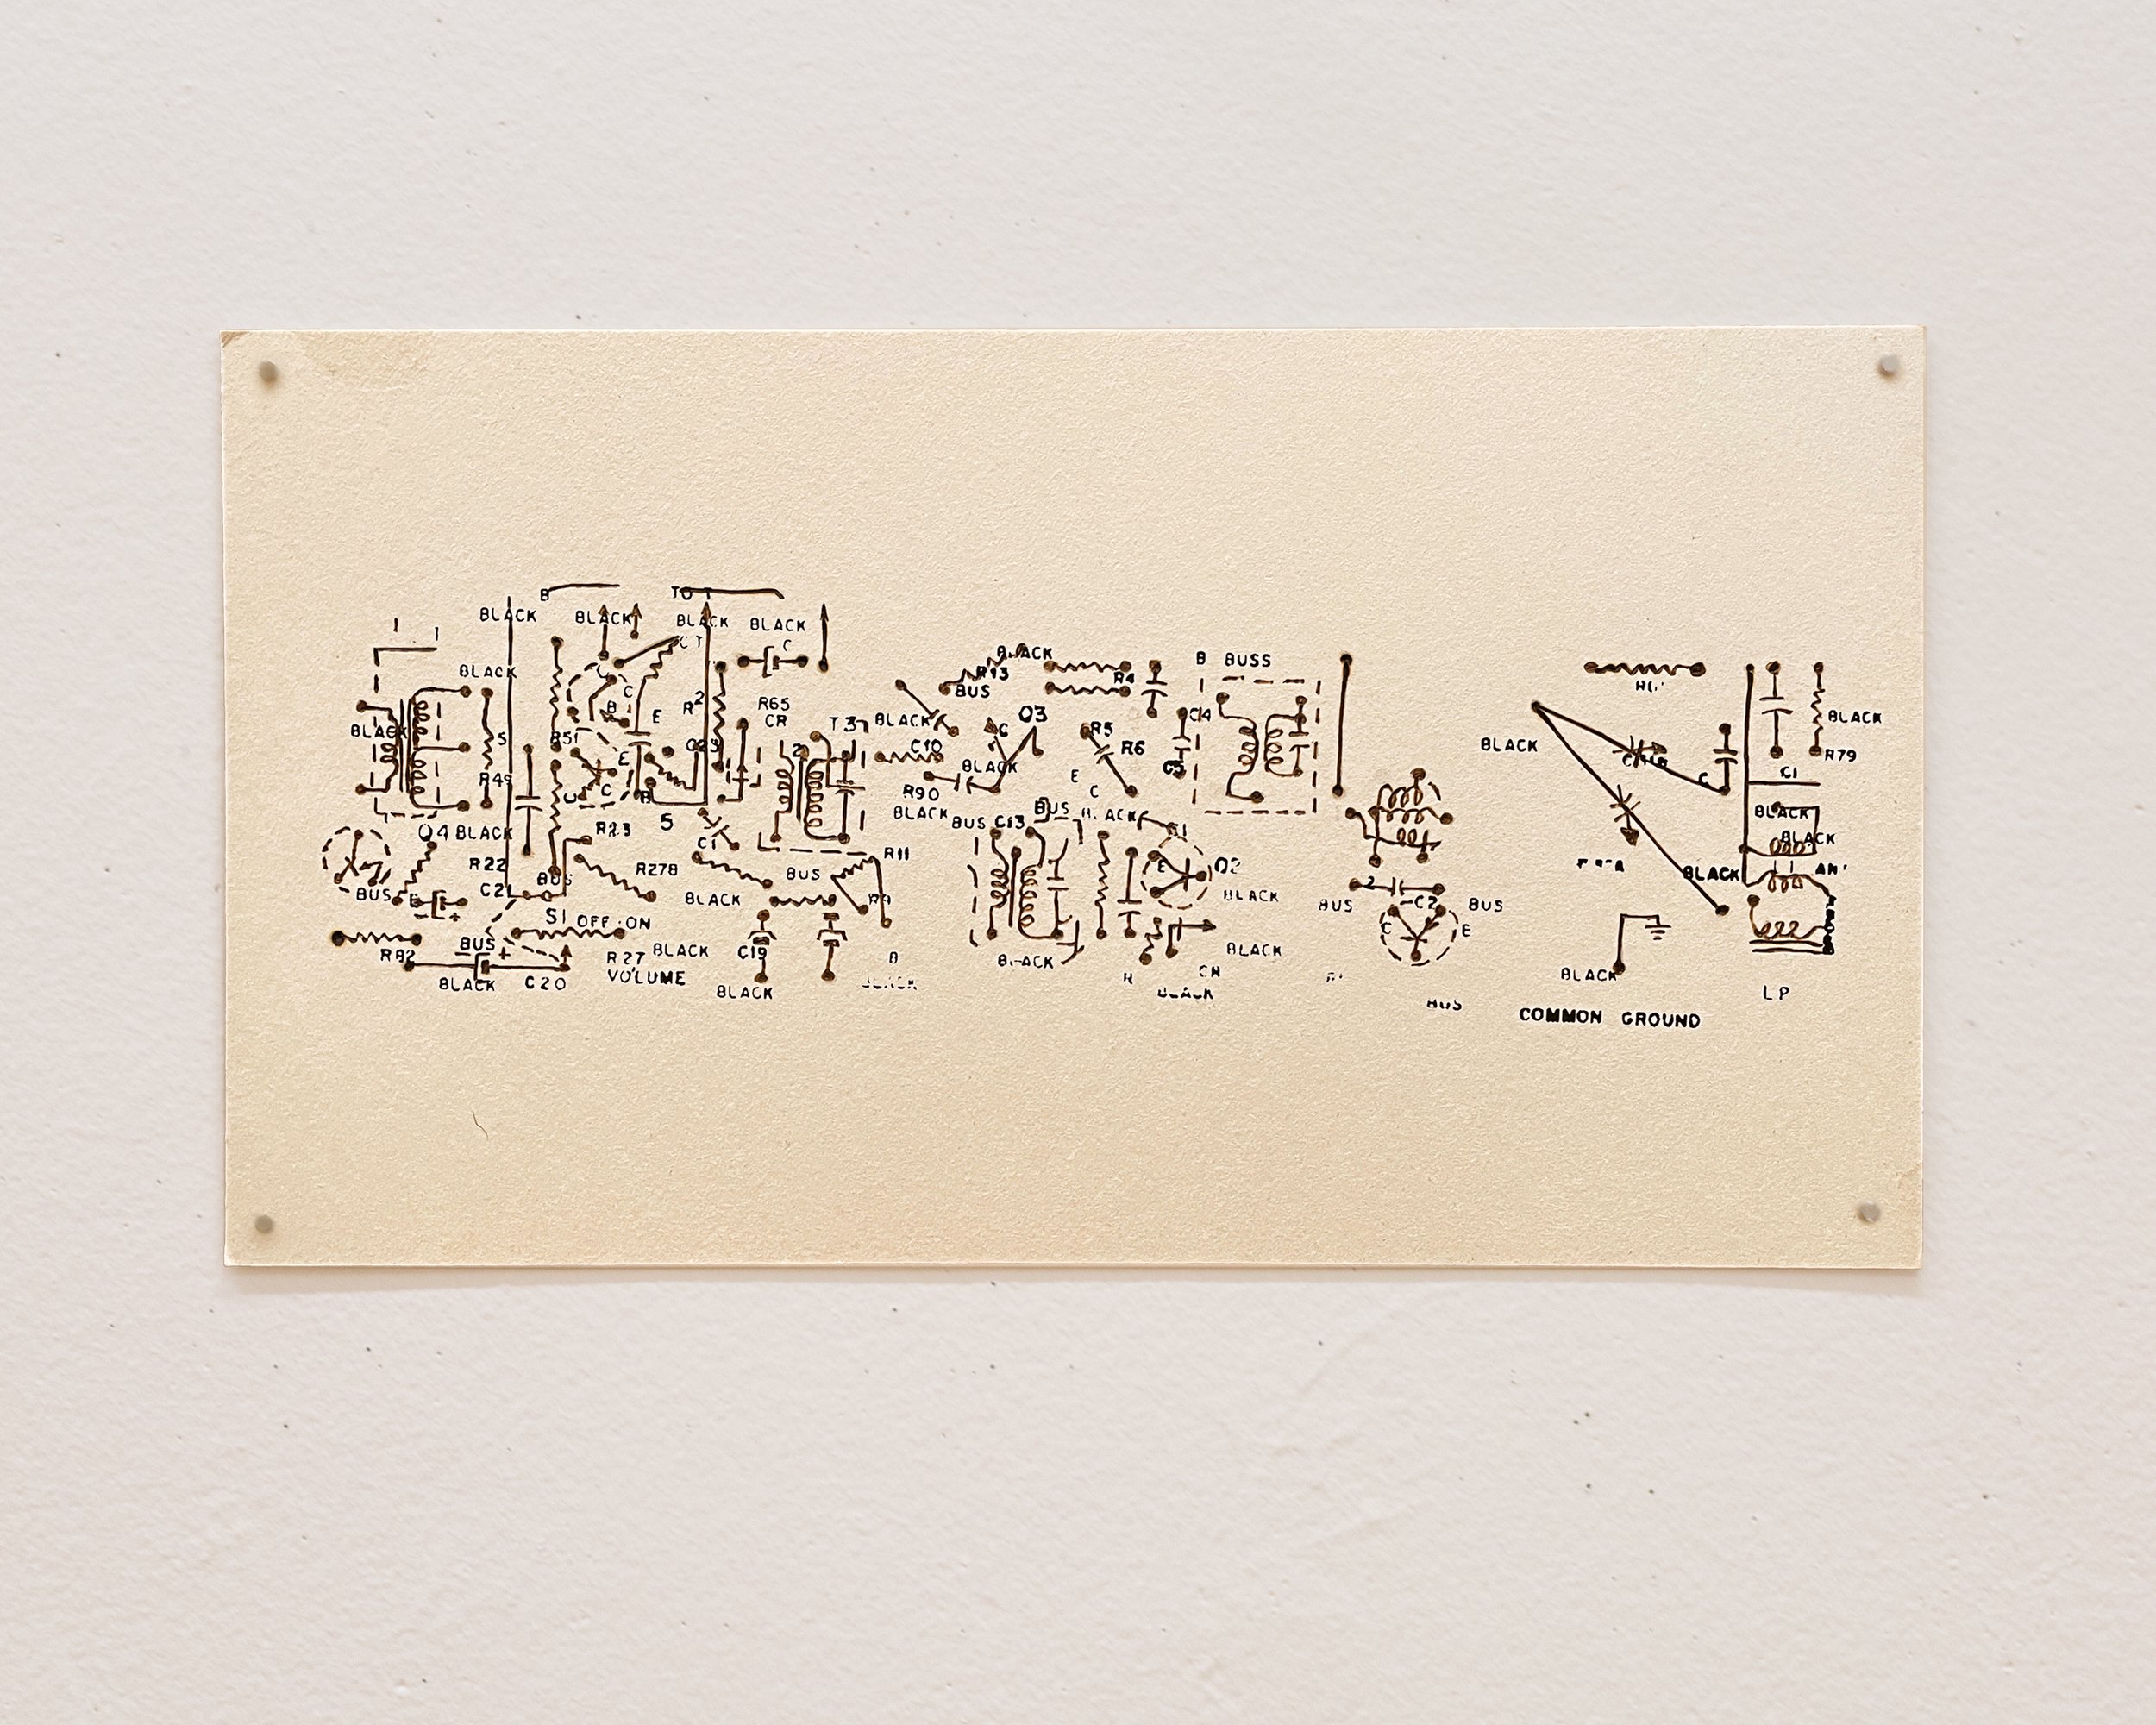 B
TO T
BLACK BLACK BLACK BLACK
C
BLACK
C
R2
R65
CR
T3
BLACK
B
E
BLACK
S
R51
E
C
R49
B
BLACK
R13
BUS
R4
B BUSS
C4
BLACK
O3
C
C10
R5
R6
BLACK
E
C
R90
BLACK
BLACK
R79
C1
C
BLACK
BLACK
O4 BLACK
R23
5
C1
R11
BUS C13
BUS
R22
C21
BUS
R278
BUS
BLACK
R9
E
O2
BLACK
BLACK
BUS
S1 OFF ON
BUS
R82
BLACK C20
R27
VOLUME
BLACK
C19
BLACK
B
BLACK
BLACK
CH
BLACK
BUS
2
C2
BUS
C
E
BUS
BLACK
COMMON GROUND
LP